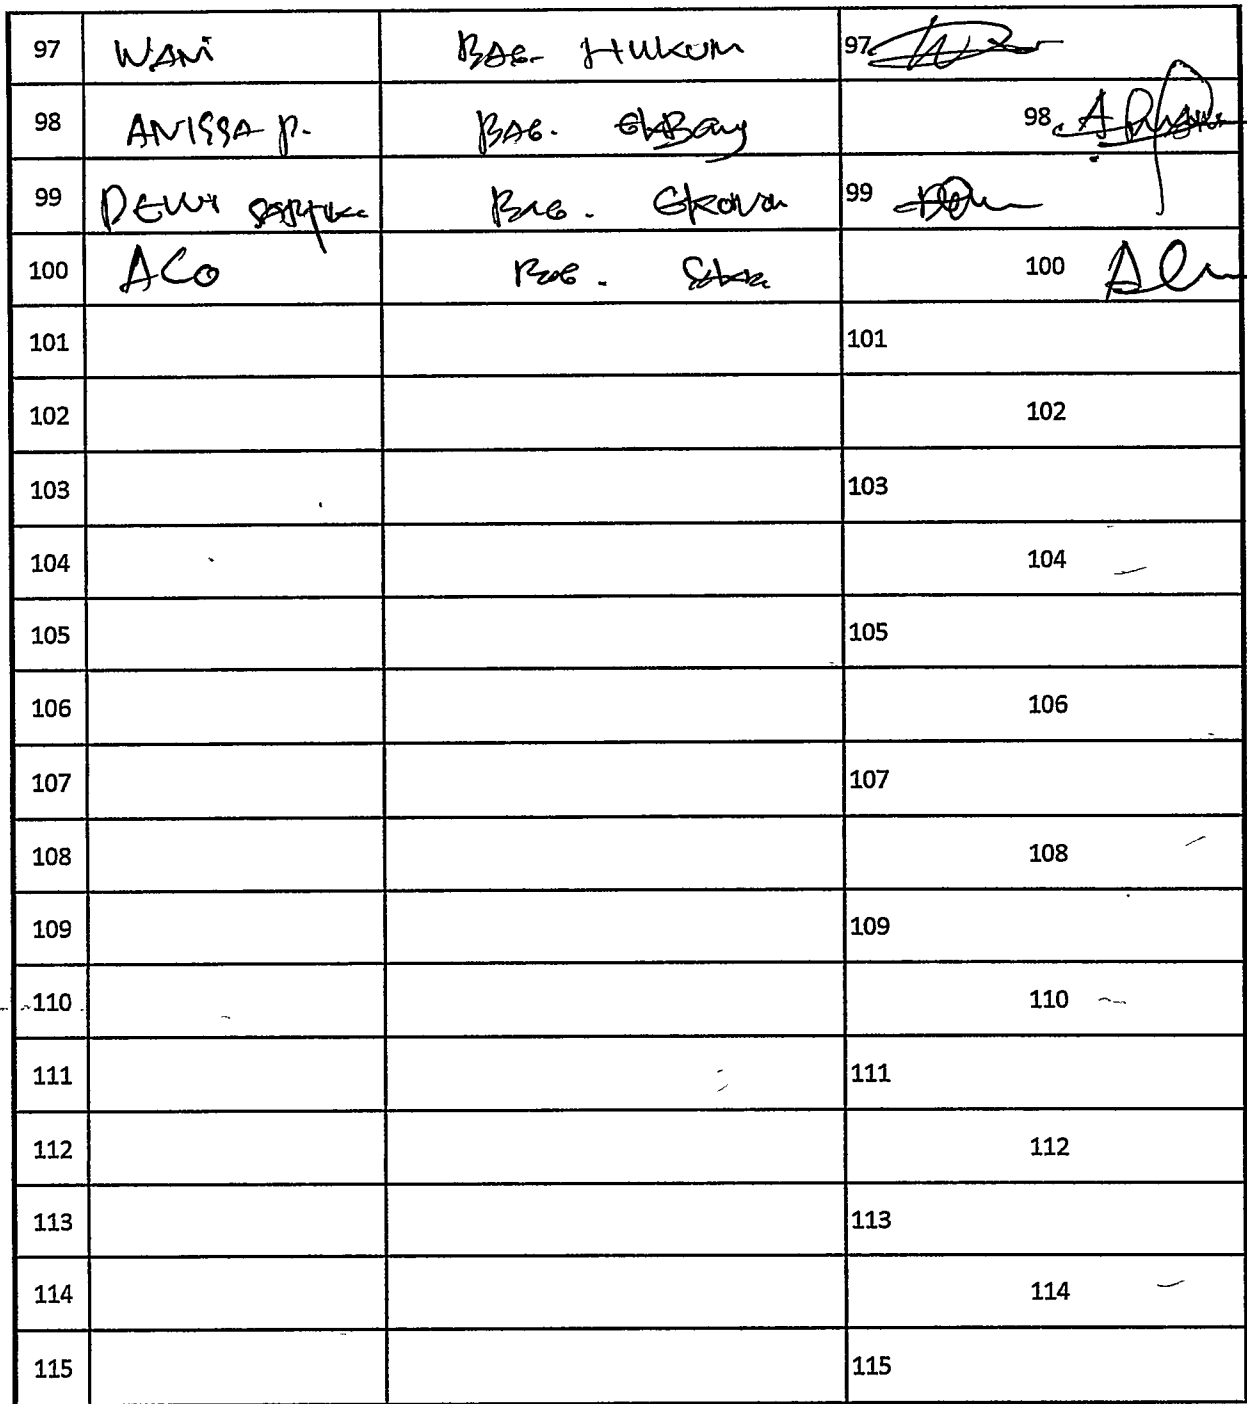 97 WANI BAG. HUKUM 97
98 ANISSA P. BAG. EkBang 98
99 DEWI SARTIKA BAG. 99
100 ACO BAG. 100
101 101
102 102
103 103
104 104
105 105
106 106
107 107
108 108
109 109
110 110
111 111
112 112
113 113
114 114
115 115